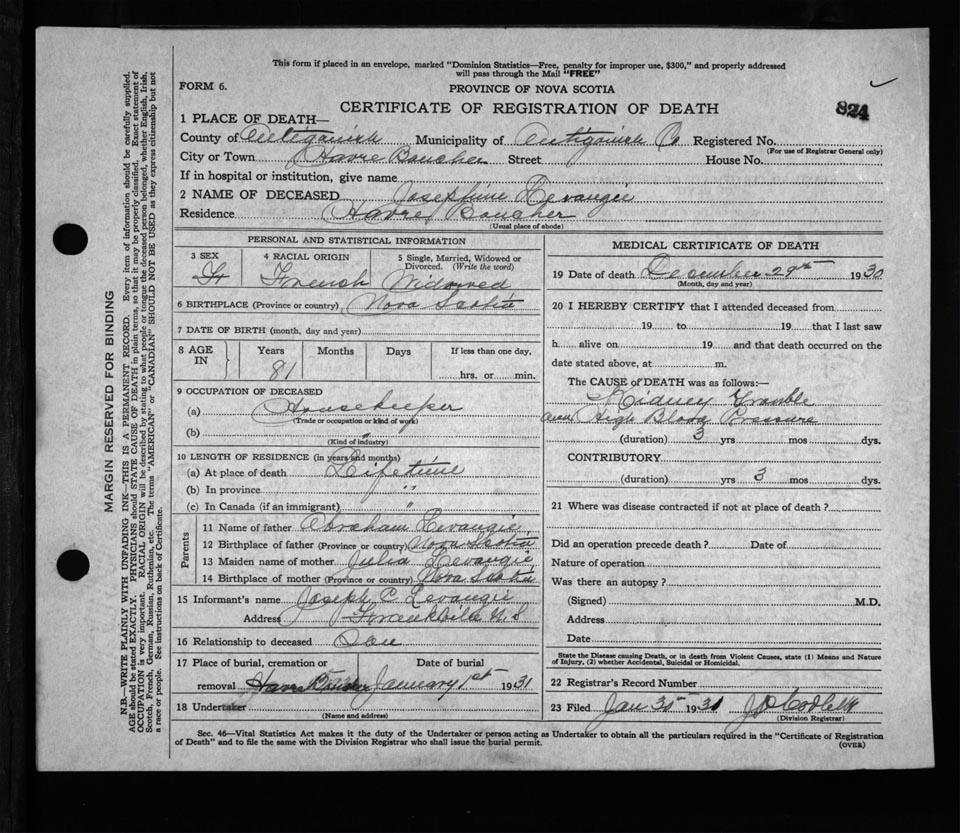 This form if placed in an envelope, marked "Dominion Statistics—Free, penalty for improper use, $300," and properly addressed
will pass through the Mail "FREE"
FORM 6.
PROVINCE OF NOVA SCOTIA
CERTIFICATE OF REGISTRATION OF DEATH
824
1 PLACE OF DEATH—
County of Antigonish Municipality of Antigonish Co Registered No.
(For use of Registrar General only)
City or Town Havre Boucher Street House No.
If in hospital or institution, give name
2 NAME OF DECEASED Josephine Levangie
Residence Havre Boucher
(Usual place of abode)
PERSONAL AND STATISTICAL INFORMATION
3 SEX 4 RACIAL ORIGIN 5 Single, Married, Widowed or
Divorced. (Write the word)
F French Widowed
6 BIRTHPLACE (Province or country) Nova Scotia
7 DATE OF BIRTH (month, day and year)
8 AGE IN Years Months Days If less than one day,
81 hrs. or min.
9 OCCUPATION OF DECEASED
(a) Housekeeper
(Trade or occupation or kind of work)
(b)
(Kind of industry)
10 LENGTH OF RESIDENCE (in years and months)
(a) At place of death Lifetime
(b) In province "
(c) In Canada (if an immigrant) "
Parents
11 Name of father Abraham Levangie
12 Birthplace of father (Province or country) Nova Scotia
13 Maiden name of mother Julia Levangie
14 Birthplace of mother (Province or country) Nova Scotia
15 Informant's name Joseph C Levangie
Address Frankville N.S
16 Relationship to deceased Son
17 Place of burial, cremation or Date of burial
removal Havre Boucher January 1st 1931
18 Undertaker
(Name and address)
MEDICAL CERTIFICATE OF DEATH
19 Date of death December 29th 1930
(Month, day and year)
20 I HEREBY CERTIFY that I attended deceased from
19 to 19 that I last saw
h alive on 19 and that death occurred on the
date stated above, at m.
The CAUSE OF DEATH was as follows:—
Kidney Trouble
High Blood Pressure
(duration) 3 yrs mos dys.
CONTRIBUTORY
(duration) yrs 3 mos dys.
21 Where was disease contracted if not at place of death?
Did an operation precede death? Date of
Nature of operation
Was there an autopsy?
(Signed) M.D.
Address
Date
State the Disease causing Death, or in death from Violent Causes, state (1) Means and Nature
of Injury, (2) whether Accidental, Suicidal or Homicidal.
22 Registrar's Record Number
23 Filed Jan 1931
(Division Registrar)
Sec. 46—Vital Statistics Act makes it the duty of the Undertaker or person acting as Undertaker to obtain all the particulars required in the "Certificate of Registration
of Death" and to file the same with the Division Registrar who shall issue the burial permit.
(OVER)
MARGIN RESERVED FOR BINDING
N.B.—WRITE PLAINLY WITH UNFADING INK—THIS IS A PERMANENT RECORD. Every item of information should be carefully supplied.
AGE should be stated EXACTLY. PHYSICIANS should STATE CAUSE OF DEATH in plain terms, so that it may be properly classified. Exact statement of
OCCUPATION is very important. RACIAL ORIGIN will be described by stating to what people or tongue the deceased person belonged, whether English, Irish,
Scotch, French, German, Russian, Ruthenian, etc. The terms "AMERICAN" or "CANADIAN" SHOULD NOT BE USED as they express citizenship but not
a race or people. See instructions on back of Certificate.